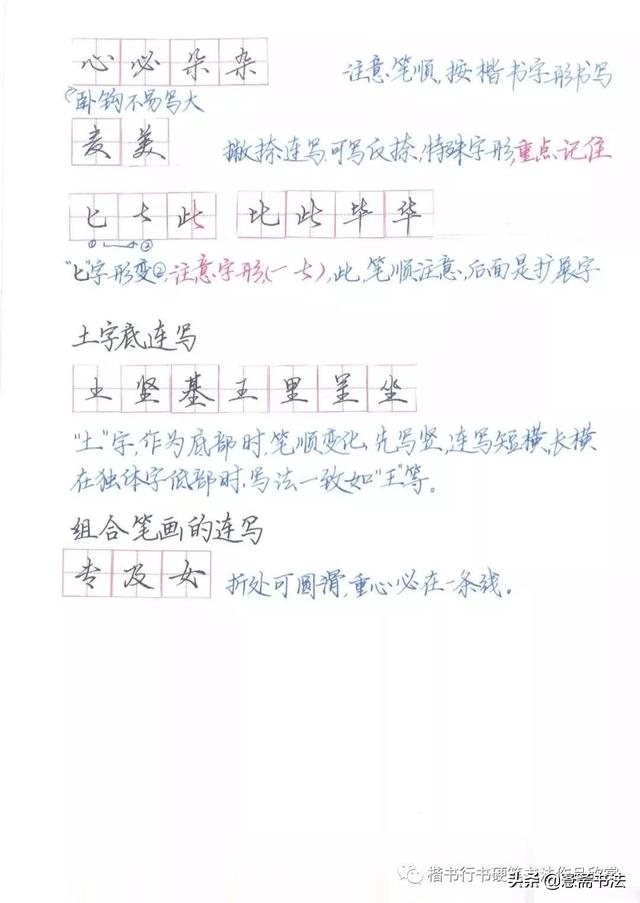 心必朵杂 注意笔顺,按楷书字形书写
卧钩不易写大
麦美 撇捺连写,可写反捺,特殊字形,重点记住
匕 七 此 比此毕华
① ②
"匕"字形变②,注意字形(一七),此,笔顺注意,后面是扩展字
土字底连写
土竖基王里呈坐
"土"字,作为底部时,笔顺变化,先写竖,连写短横,长横
在独体字低部时,写法一致如"王"等。
组合笔画的连写
专及女 折处可圆滑,重心必在一条线。
楷书行书硬笔书法作品欣赏
头条@慧斋书法